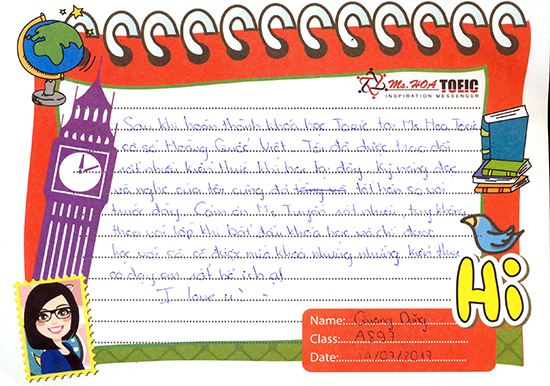 Ms. HOA TOEIC
INSPIRATION MESSENGER
Sau khi hoàn thành khóa học Toeic tại Ms Hoa Toeic
cơ sở Hoàng Quốc Việt. Tôi đã được trau dồi
rất nhiều kiến thức khi học tại đây. Kỹ năng đọc
và nghe của tôi cũng đã tốt hơn so với
trước đây. Cảm ơn Ms. Tuyết rất nhiều, tuy không
theo với lớp khi bắt đầu khóa học và chỉ được
học với cô có được nửa khóa nhưng những kiến thức
cô dạy em rất bổ ích ạ!
I love u
Hi
Name: Quang Dũng
Class: A597
Date: /07/2017